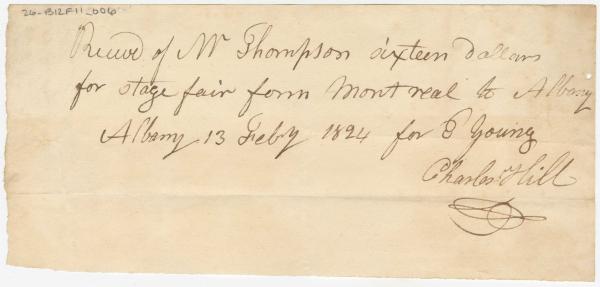 26-B12F11-006
Recivd of Mr Thompson sixteen dollars
for stage fair form Montreal to Albany
Albany 13 Feby 1824 for P Young
Charles Hill